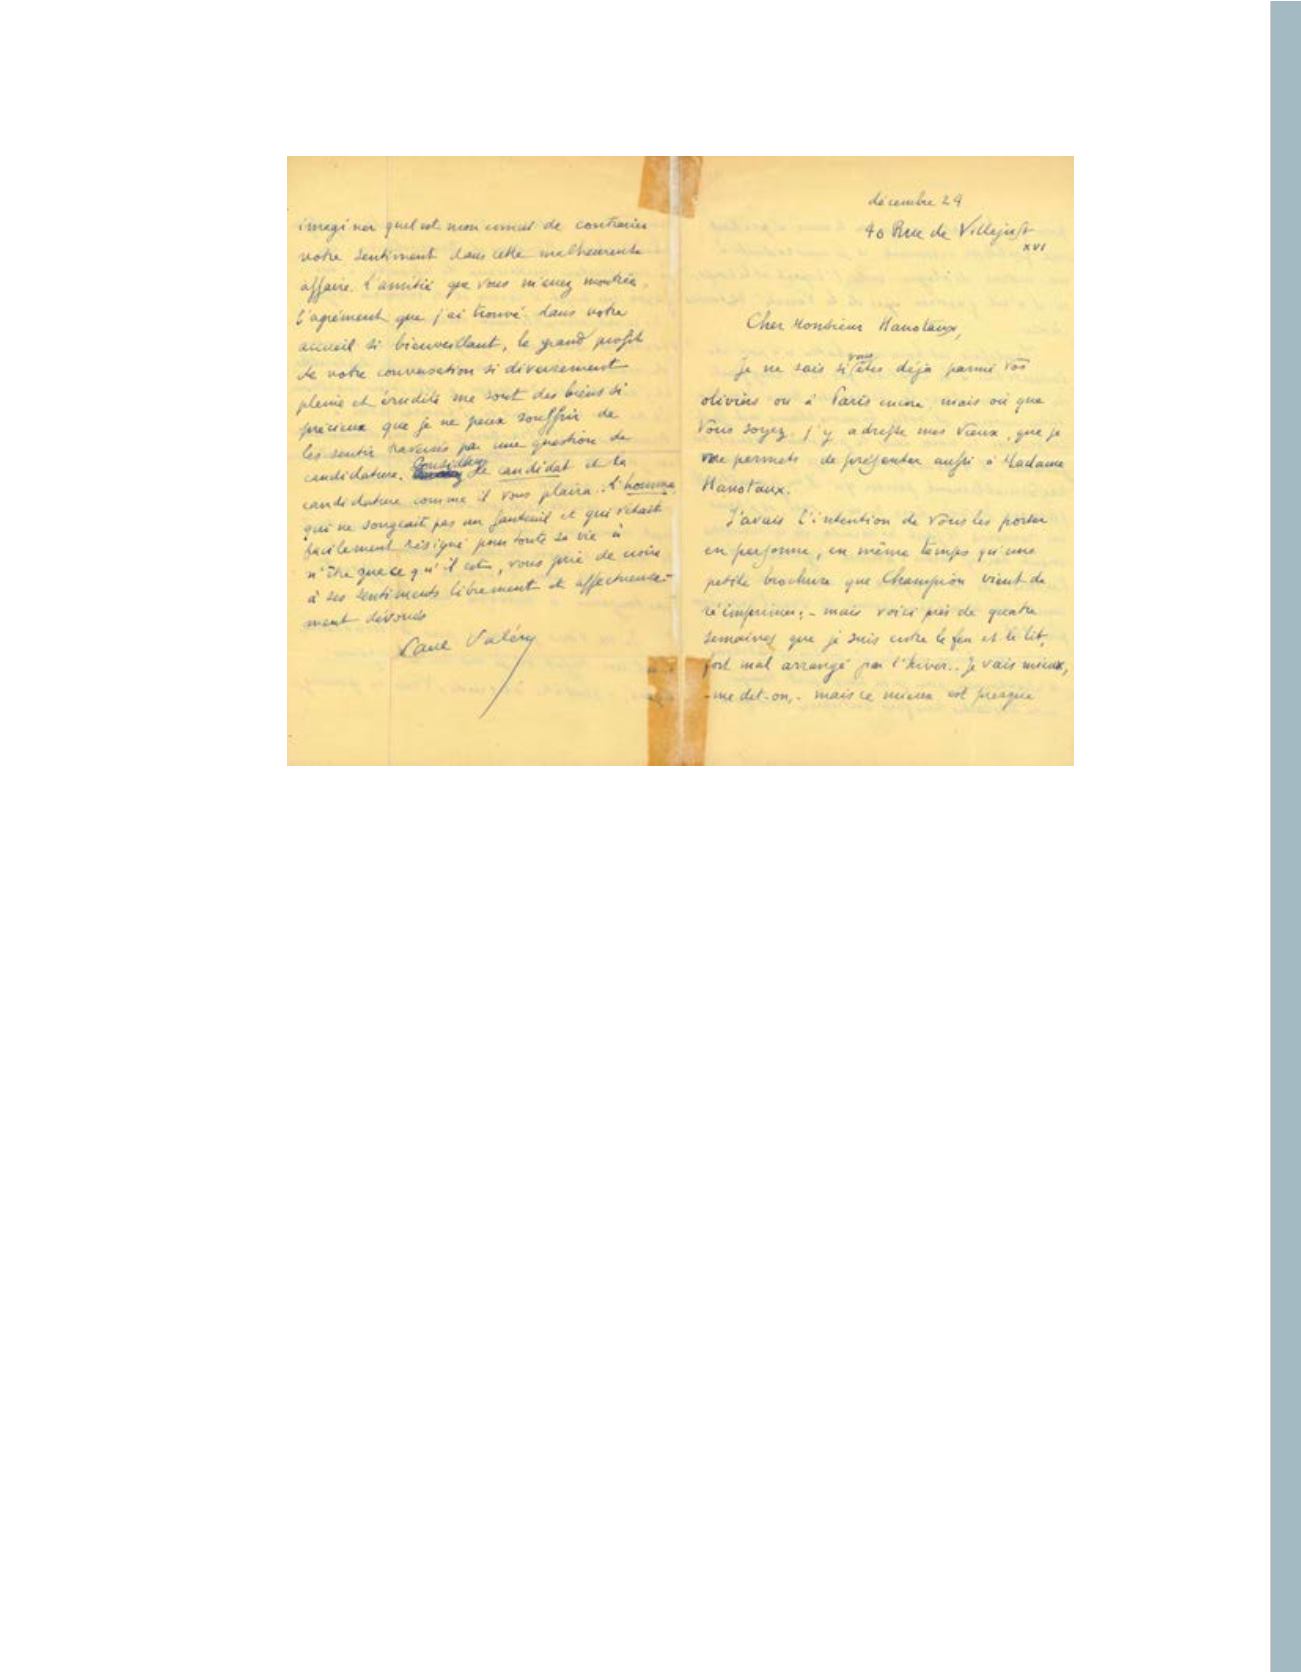 décembre 24
40 Rue de Villejust
XVI
Cher Monsieur Hanotaux,
Je ne sais si vous êtes déjà parmi vos
oliviers ou à Paris encore, mais où que
vous soyez j'y adresse mes vœux, que je
me permets de présenter aussi à Madame
Hanotaux.
J'avais l'intention de vous les porter
en personne, en même temps qu'une
petite brochure que Champion vient de
réimprimer; - mais voici près de quatre
semaines que je suis entre le feu et le lit,
fort mal arrangé par l'hiver.. Je vais mieux,
- me dit-on, - mais ce mieux est presque
imaginer quel est mon ennui de contrarier
votre sentiment dans cette malheureuse
affaire. L'amitié que vous m'avez montrée,
l'agrément que j'ai trouvé dans votre
accueil si bienveillant, le grand profit
de votre conversation si diversement
pleine et érudite me sont des biens si
précieux que je ne peux souffrir de
les sentir traversés par une question de
candidature. Considérez le candidat et la
candidature comme il vous plaira. L'homme,
qui ne songeait pas au fauteuil et qui s'était
facilement résigné pour toute sa vie à
n'être que ce qu'il est, vous prie de croire
à ses sentiments librement et affectueuse-
ment dévoués
Paul Valéry